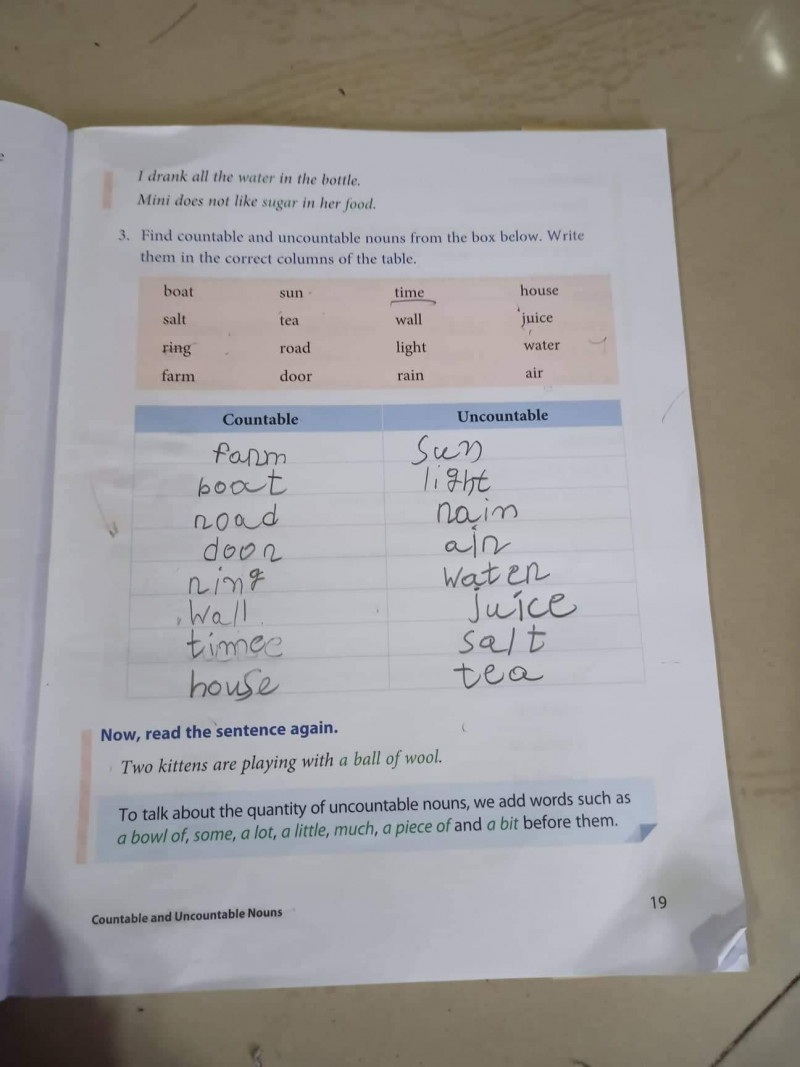 I drank all the water in the bottle.
Mini does not like sugar in her food.
3. Find countable and uncountable nouns from the box below. Write
them in the correct columns of the table.
boat sun time house
salt tea wall juice
ring road light water
farm door rain air
Countable Uncountable
farm Sun
boat light
road rain
door air
ring Water
Wall juice
timee salt
house tea
Now, read the sentence again.
Two kittens are playing with a ball of wool.
To talk about the quantity of uncountable nouns, we add words such as
a bowl of, some, a lot, a little, much, a piece of and a bit before them.
Countable and Uncountable Nouns 19